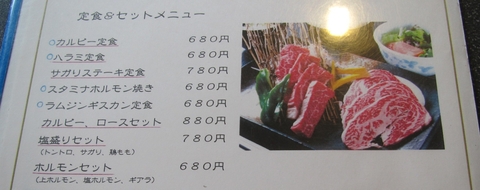 定食&セットメニュー
○カルビー定食 680円
○ハラミ定食 680円
サガリステーキ定食 780円
○スタミナホルモン焼き 680円
○ラムジンギスカン定食 680円
カルビー、ロースセット 880円
塩盛りセット 780円
(トントロ、サガリ、鶏もも)
ホルモンセット 680円
(上ホルモン、塩ホルモン、ギアラ)